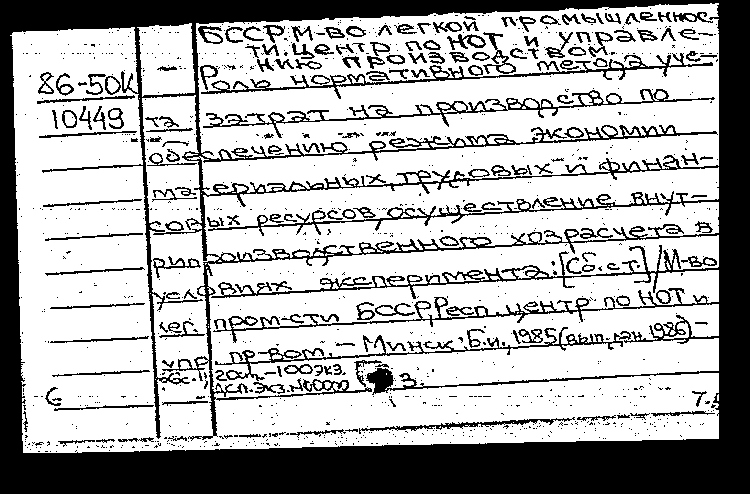 БССР. М-во легкой промышленнос-
ти. Центр по НОТ и управле-
нию производством.
86-50К
Роль нормативного метода уче-
10449
та затрат на производство по
обеспечению режима экономии
материальных, трудовых и финан-
совых ресурсов, осуществление внут-
рипроизводственного хозрасчета в
условиях эксперимента: [Сб. ст.] / М-во
лег. пром-сти БССР, Респ. центр по НОТ и
упр. пр-вом. - Минск: Б.и., 1985 (вып. дан. 1986) -
20см - 100экз.
ДСП. Экз. №00000 3.